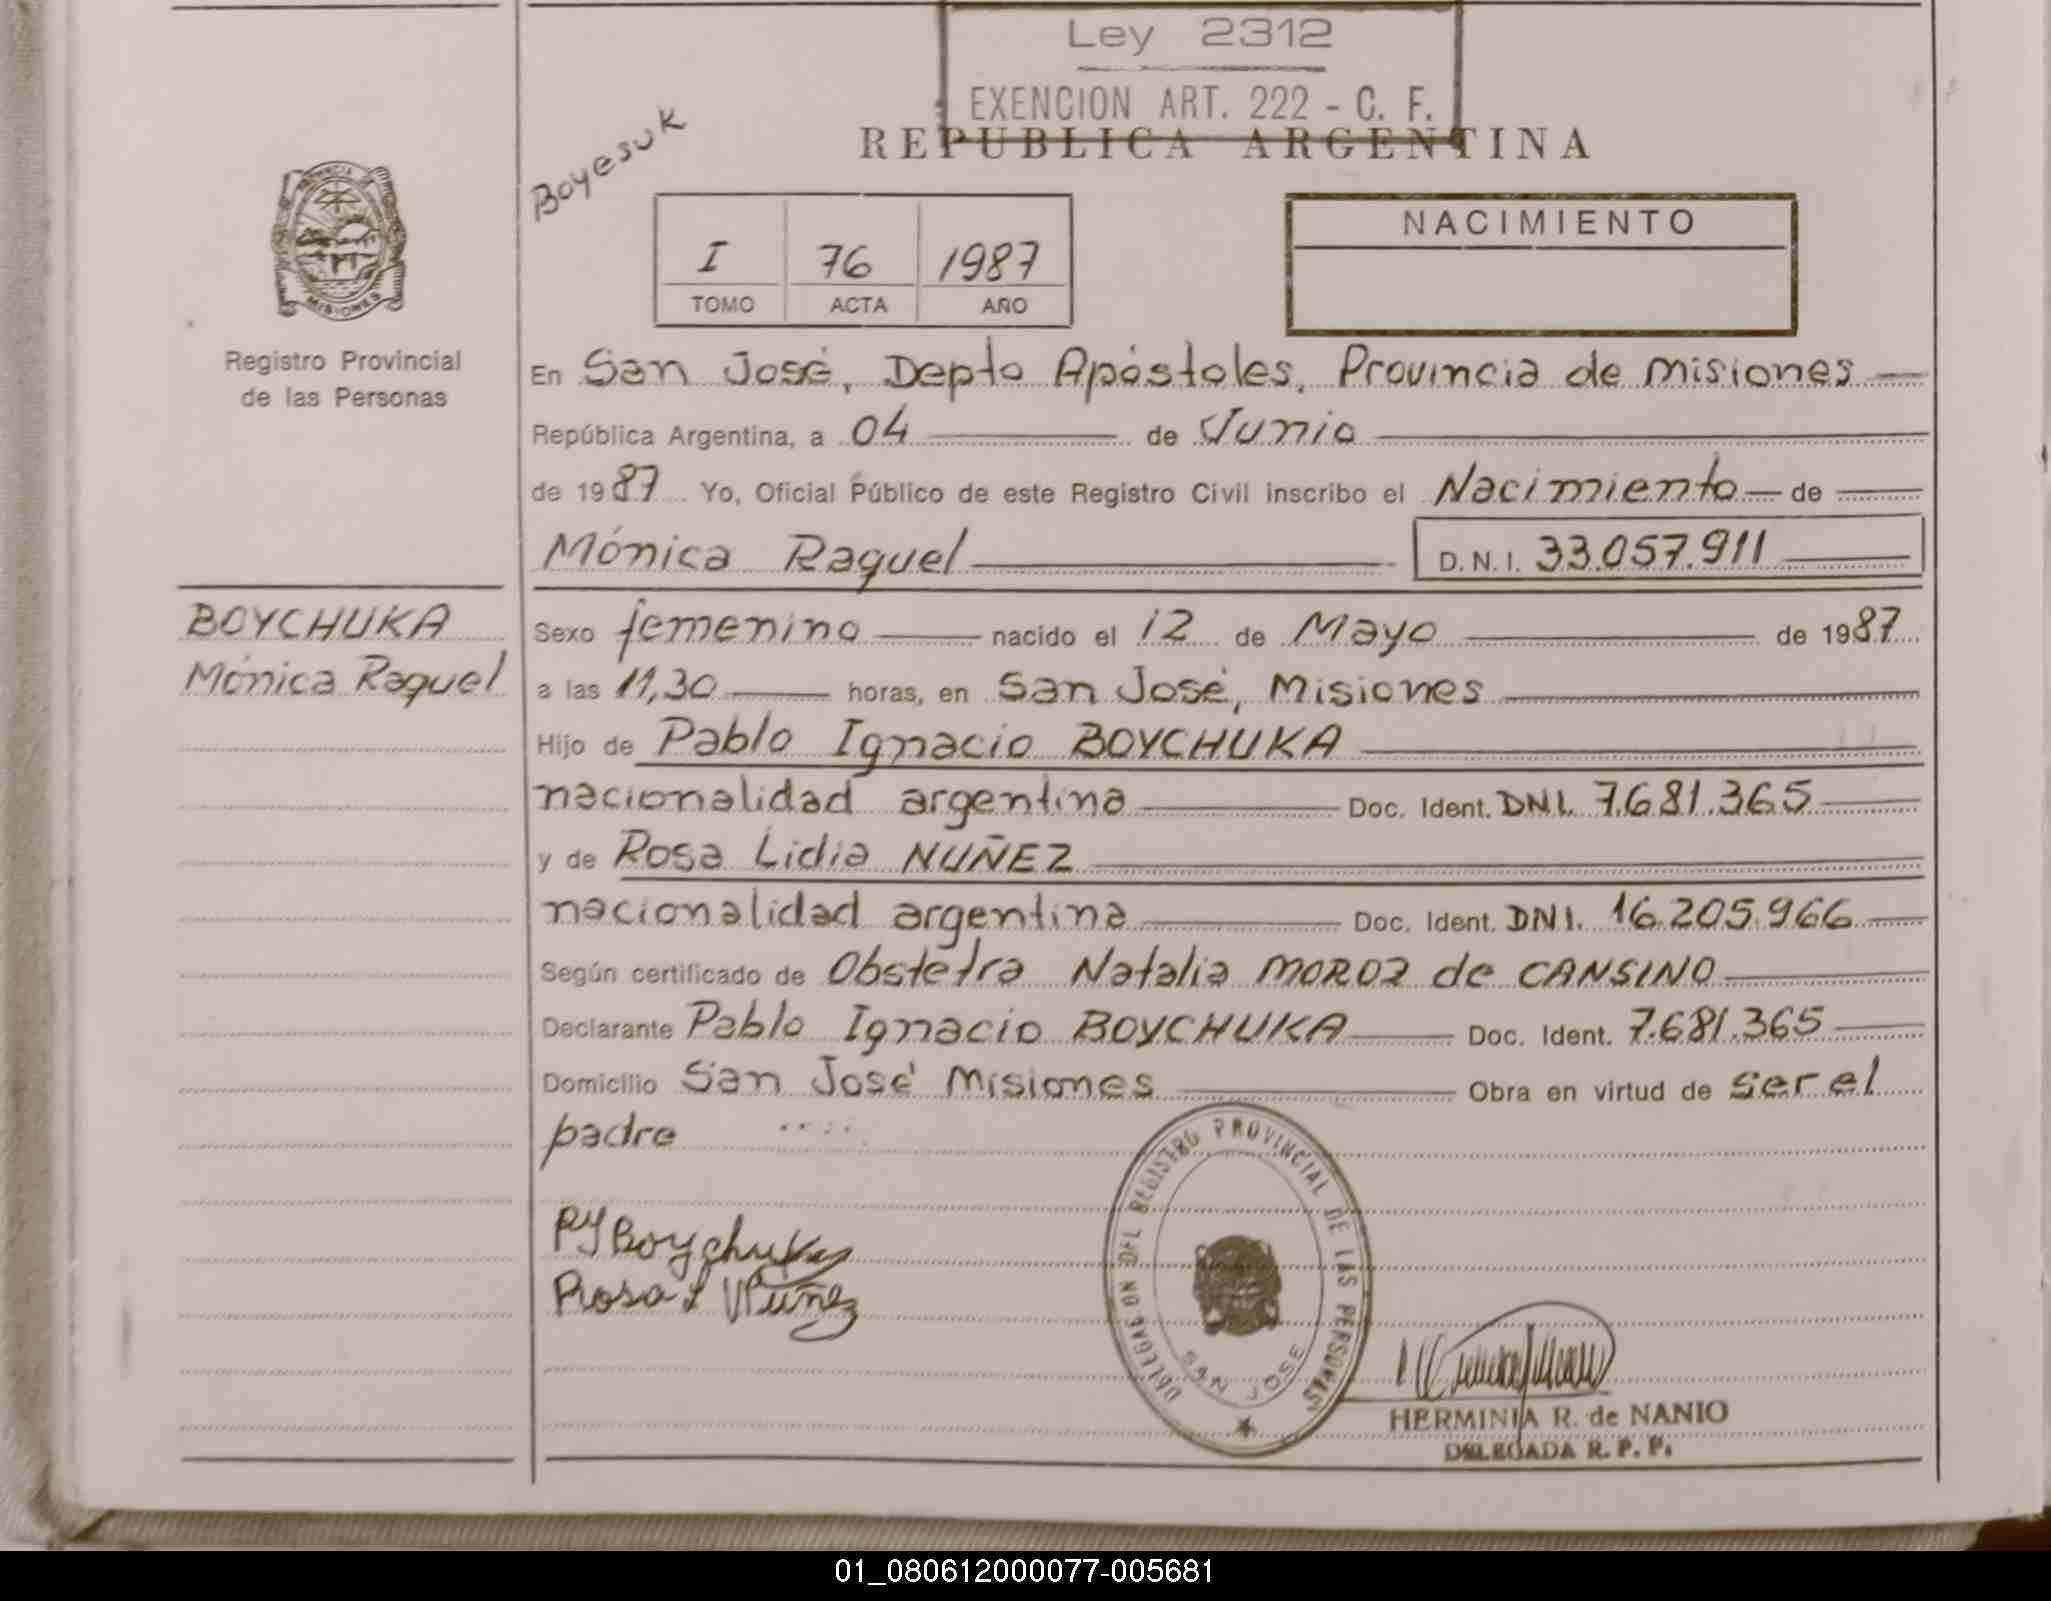 Ley 2312
EXENCION ART. 222 - C. F.
REPUBLICA ARGENTINA
Boyesuk
PROVINCIA DE
MISIONES
Registro Provincial
de las Personas
I 76 1987
TOMO ACTA AÑO
NACIMIENTO
En San José, Depto Apóstoles, Provincia de Misiones
República Argentina, a 04 de Junio
de 1987 Yo, Oficial Público de este Registro Civil inscribo el Nacimiento de
Mónica Raquel D.N.I. 33.057.911
BOYCHUKA
Mónica Raquel
Sexo femenino nacido el 12 de Mayo de 1987
a las 11,30 horas, en San José, Misiones
Hijo de Pablo Ignacio BOYCHUKA
nacionalidad argentina Doc. Ident. DNI. 7.681.365
y de Rosa Lidia NUÑEZ
nacionalidad argentina Doc. Ident. DNI. 16.205.966
Según certificado de Obstetra Natalia MOROZ de CANSINO
Declarante Pablo Ignacio BOYCHUKA Doc. Ident. 7.681.365
Domicilio San José Misiones Obra en virtud de ser el
padre
PYBoychuka
Rosa L Nuñez
DELEGACION DEL REGISTRO PROVINCIAL DE LAS PERSONAS
SAN JOSE
HERMINIA R. de NANIO
DELEGADA R. P. P.
01_080612000077-005681